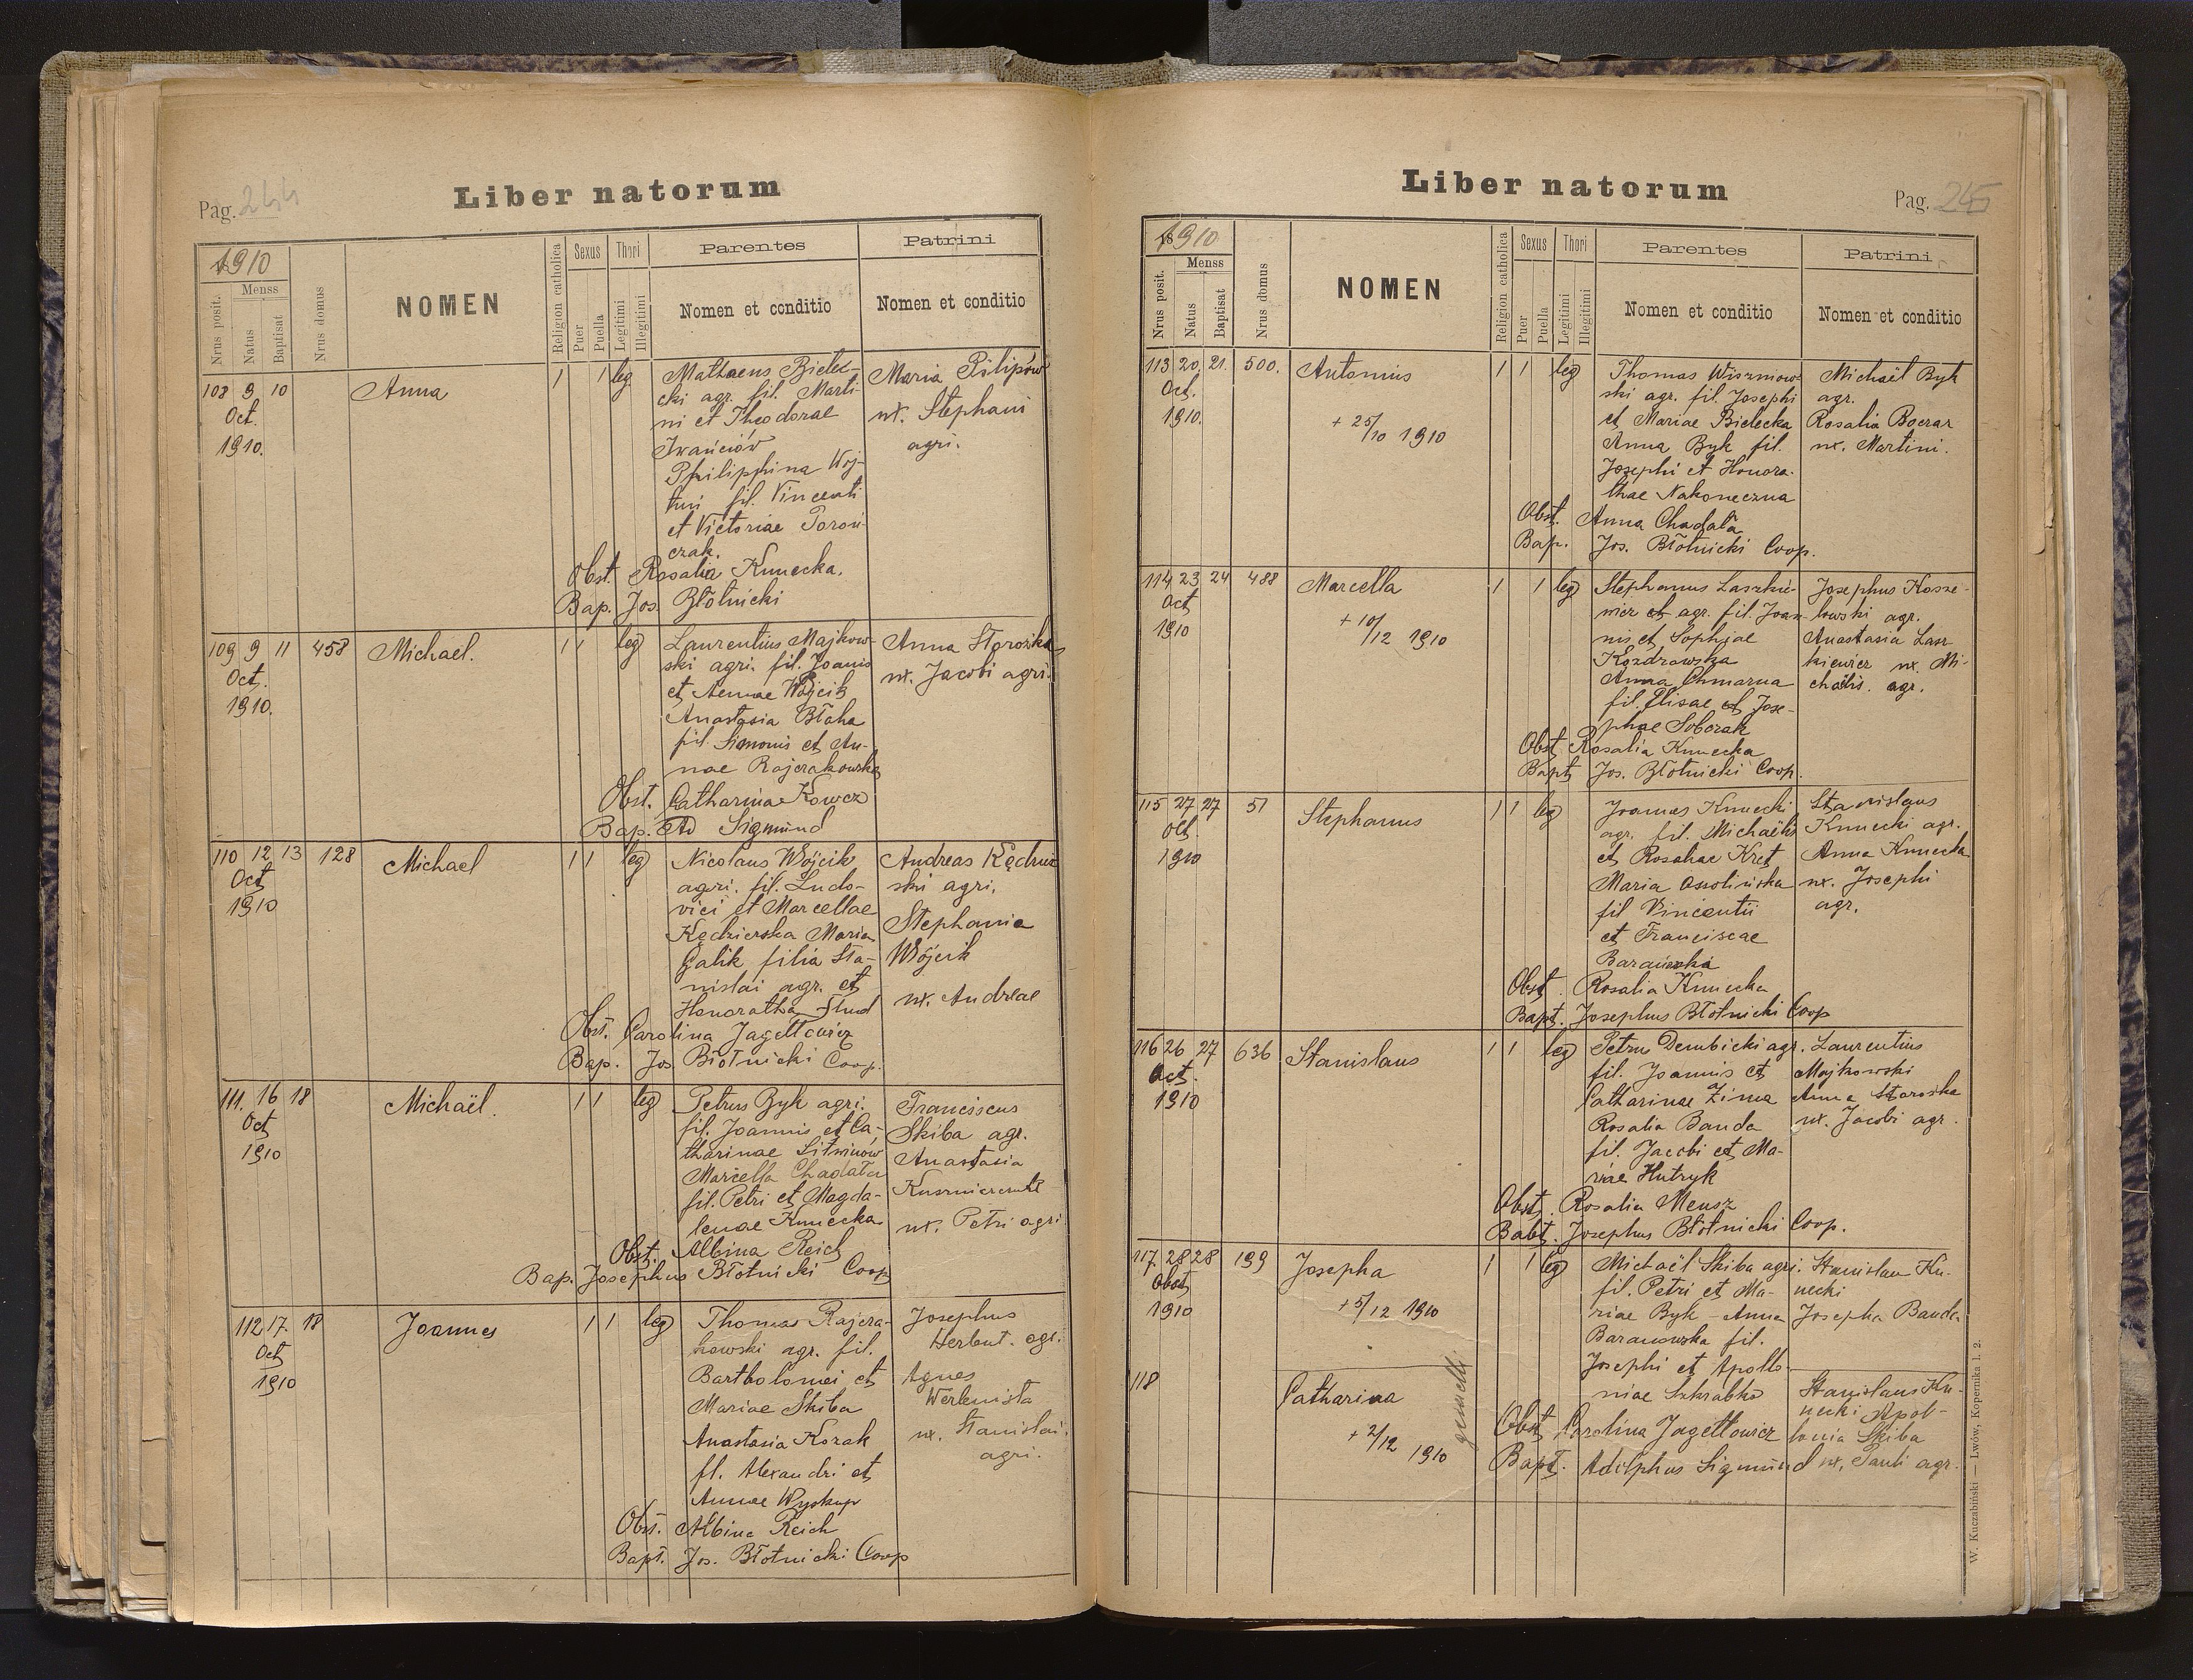 Pag. 244
Liber natorum
1910
Menss
Nrus posit.
Natus
Baptisat
Nrus domus
NOMEN
Religion catholica
Sexus
Puer
Puella
Thori
Legitimi
Illegitimi
Parentes
Nomen et conditio
Patrini
Nomen et conditio
108 9 10 Anna 1 1 leg
Oct.
1910.
Mathaeus Bielec-
cki agr. fil. Marti-
ni et Theodorae
Iwańciów
Philipphina Woj-
tni fil. Vincenti
et Victoriae Toroń-
czak.
Maria Pilipów
ux. Stephani
agri.
Obst. Rosalia Kunecka.
Bap. Jos. Błotnicki
109 9 11 458 Michael. 1 1 leg
Oct.
1910.
Laurentius Majkow-
ski agri. fil. Joanis
et Annae Wójcik
Anastasia Błaha
fil. Simonis et An-
nae Rajczakowska
Anna Storożka
ux. Jacobi agri.
Obst. Catharina Kowcz
Bap. Ad Sigmund
110 12 13 128 Michael 1 1 leg
Oct
1910
Nicolaus Wójcik
agri. fil. Ludo-
vici et Marcellae
Kędzierska Maria
Galik filia Sta-
nislai agr. et
Honoratha Słud
Andreas
ski agri.
Stephania
Wójcik
ux. Andreae
Obst. Carolina Jagełłowicz
Bap. Jos Błotnicki Coop.
111. 16 18 Michaël. 1 1 leg
Oct
1910
Petrus Byk agri.
fil. Joannis et Ca-
tharinae Litwinów
Marcella Chadała
fil. Petri et Magda-
lenae Kunecka
Franciscus
Skiba agr.
Anastasia
ux. Petri agri
Obst. Albina Reich
Bap. Josephus Błotnicki Coop
112 17. 18 Joannes 1 1 leg
Oct
1910
Thomas Rajcza-
kowski agr. fil.
Bartholomei et
Mariae Skiba
Anastasia Kozak
fl. Alexandri et
Annae Wyskup
Josephus
Herbut. agr.
Agnes
Werbenista
ux. Stanislai.
agri.
Obst. Albina Reich
Bapt. Jos. Błotnicki Coop
Liber natorum
Pag. 245
1910
Menss
Nrus posit.
Natus
Baptisat
Nrus domus
NOMEN
Religion catholica
Sexus
Puer
Puella
Thori
Legitimi
Illegitimi
Parentes
Nomen et conditio
Patrini
Nomen et conditio
113 20. 21. 500. Antonius 1 1 leg
Oct.
1910.
+ 25/10 1910
Thomas Wiszniow-
ski agr. fil. Josephi
et Mariae Bielecka
Anna Byk fil.
Josephi et Honora-
thae Nakoneczna
Michaël Byk
agr.
Rosalia Boczar
ux. Martini.
Obst. Anna Chadała
Bap. Jos. Błotnicki Coop.
114 23 24 488 Marcella 1 1 leg
Oct
1910
+ 10/12 1910
Stephanus Laszkie-
wicz et agr. fil. Joan-
nis et Sophiae
Kozdrowska
Anna Chmarna
fil. Elisae et Jose-
phae Soborak
Josephus Kosze-
lowski agr.
Anastasia Lasz
kiewicz ux. Mi-
chaëlis. agr.
Obst Rosalia Kunecka
Bapt Jos. Błotnicki Coop.
115 27 27 51 Stephanus 1 1 leg
Oct.
1910
Joannes Kunecki
agr. fil. Michaëlis
et Rosaliae Kret
Maria Ossolińska
fil Vincentii
et Franciscae
Barańska
Stanislaus
Kunecki agr.
Anna Kunecka
ux. Josephi
agr.
Obst. Rosalia Kunecka
Bapt. Josephus Błotnicki Coop
116 26 27 636 Stanislaus 1 1 leg
Oct.
1910
Petrus Dembicki agr.
fil. Joannis et
Catharinae Zima
Rosalia Banda
fil. Jacobi et Ma-
riae Hutryk
Laurentius
Majkowski
Anna Storożka
ux. Jacobi agr.
Obst. Rosalia Meusz
Babt. Josephus Błotnicki Coop.
117. 28 28 199 Josepha 1 1 leg
Obst
1910
+ 5/12 1910
Michaël Skiba agri.
fil. Petri et Ma-
riae Byk - Anna
Baranowska fil.
Josephi et Apollo-
niae Szkrabko
Stanislau Ku-
necki
Josepha Banda
118 Catharina
+ 2/12 1910
gemelli
Stanislaus Ku-
necki Apol-
lonia Skiba
ux. Pauli agr.
Obst Carolina Jagełłowicz
Bapt. Adolphus Sigmund
W. Kuczabiński — Lwów, Kopernika l. 2.